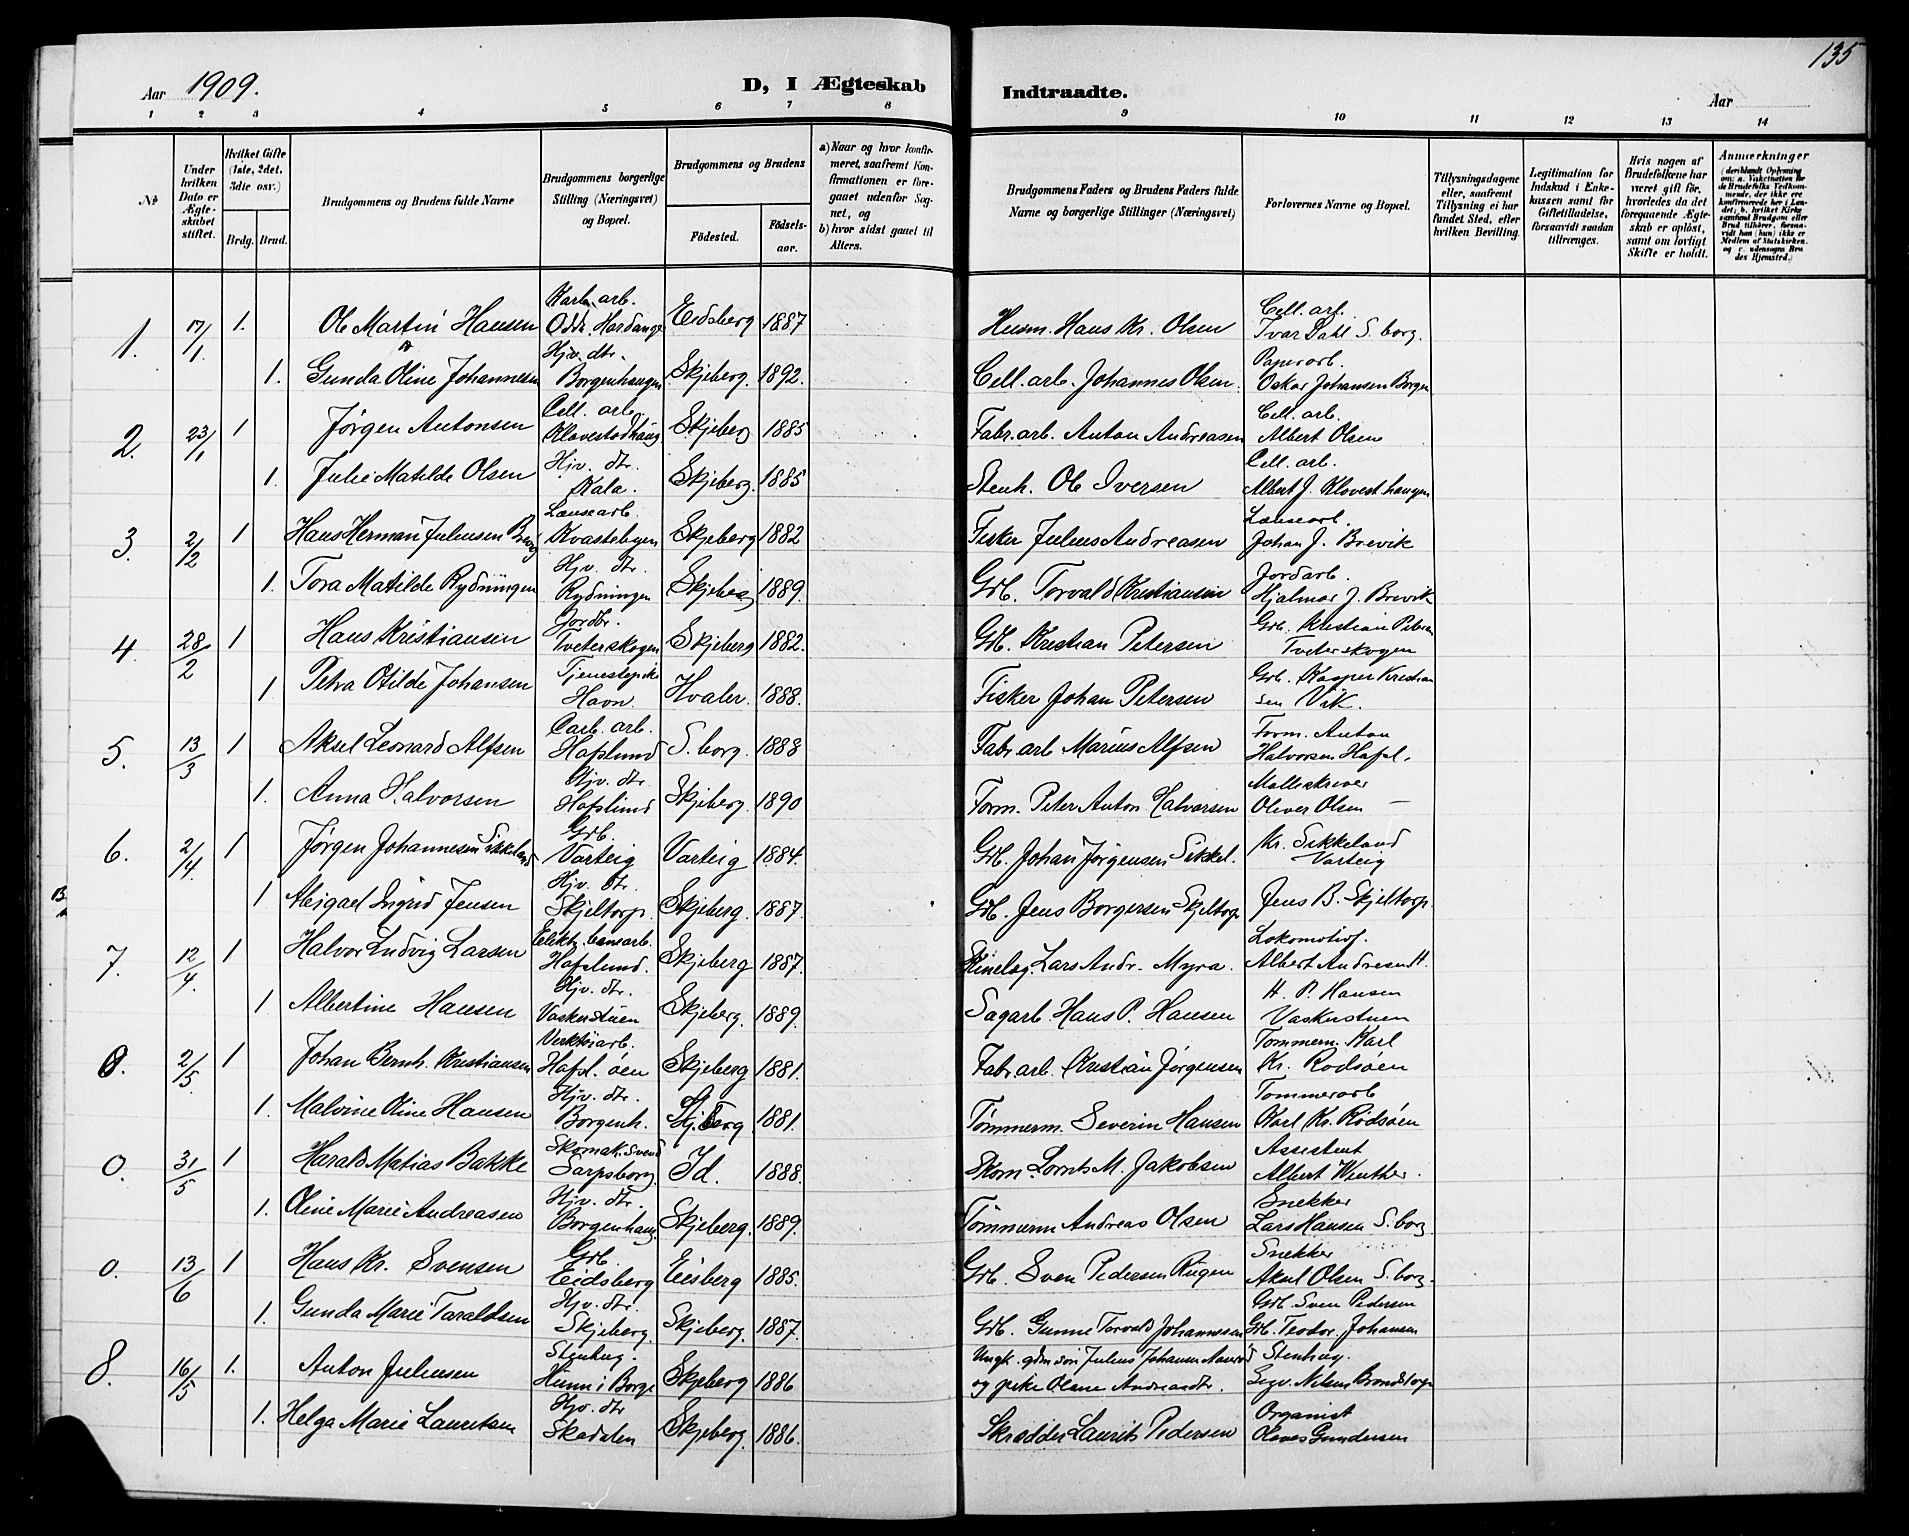 135
Aar 1909. D, I Ægteskab Indtraadte. Aar
1 2 3 4 5 6 7 8 9 10 11 12 13 14
№
Under hvilken Dato er Ægteskabet stiftet.
Hvilket Gifte (1ste, 2det, 3die osv.)
Brdg. Brud.
Brudgommens og Brudens fulde Navne
Brudgommens borgerlige Stilling (Næringsvei) og Bopæl.
Brudgommens og Brudens
Fødested. Fødselsaar.
a) Naar og hvor konfirmeret, saafremt Konfirmationen er foregaaet udenfor Sognet, og
b) hvor sidst gaaet til Alters.
Brudgommens Faders og Brudens Faders fulde Navne og borgerlige Stillinger (Næringsvei)
Forlovernes Navne og Bopæl.
Tillysningsdagene eller, saafremt Tillysning ei har fundet Sted, efter hvilken Bevilling.
Legitimation for Indskud i Enkekassen samt for Giftetilladelse, forsaavidt saadan tiltrænges.
Hvis nogen af Brudefolkene har været gift før, hvorledes da det foregaaende Ægteskab er opløst, samt om lovligt Skifte er holdt.
Anmærkninger
1. 17/1 1. Ole Martin Hansen Karb. arb. Odda Hardanger Eidsberg 1887 Husm. Hans Kr. Olsen Cell. arb. Ivar Dahl S. borg.
1. Gunda Oline Johannesen Hjv. dtr. Borgenhaugen Skjeberg. 1892. Cell. arb. Johannes Olsen. Papirarb. Oskar Johansen Borgen
2. 23/1 1 Jørgen Antonsen Cell. arb. Klovestadhaug Skjeberg 1885 Fabr. arb. Anton Andreasen Cell. arb. Albert Olsen
1. Julie Matilde Olsen Hjv. dtr. Kala. Skjeberg. 1885 Stenh. Ole Iversen Cell. arb. Albert J. Klovesthaugen
3. 2/2 1 Hans Herman Juliusen Brevig Lænsearb. Kvastebyen Skjeberg 1882 Fisker Julius Andreasen Lænsearb. Johan J. Brevik
1. Tora Matilde Rydningen Hjv. dtr. Rydningen Skjeberg 1889. Grb. Torvald Kristiansen Jordarb. Hjalmar J. Brevik
4. 28/2 1 Hans Kristiansen Jordbr. Tveterskogen Skjeberg 1882. Grb. Kristian Petersen Grb. Kristian Petersen Tveterskogen
1 Petra Otilde Johansen Tjenestepike Havn Hvaler. 1888. Fisker Johan Petersen Grb. Kasper Kristiansen Vik.
5. 13/3 1 Aksel Leonard Alfsen Carb. arb. Hafslund S. borg. 1888 Fabr. arb Marius Alfsen Form. Anton Halvorsen Hafsl.
1. Anna Halvorsen Hjv. dtr Hafslund Skjeberg. 1890 Form. Peter Anton Halvorsen Oliver Olsen —
6. 2/4. 1 Jørgen Johannesen Sikkeland Grb. Varteig Varteig 1884. Grb. Johan Jørgensen Sikkel. Kr. Sikkeland Varteig
1 Abigael Ingrid Jensen Hjv. dtr. Skjeltorp. Skjeberg. 1887. Grb. Jens Borgersen Skjeltorp Jens B. Skjeltorp.
7. 12/4. 1 Halvor Ludvig Larsen Elektr. banearb. Hafslund. Skjeberg 1887. Lars Andr. Myra. Lokomotivf. Albert Andresen H.
1 Albertine Hansen Hjv. dtr. Vaskerstuen Skjeberg. 1889. Sagarb. Hans P. Hansen H. P. Hansen Vaskerstuen
0. 2/5. 1 Johan Bernh. Kristiansen Verktøiarb. Hafsl. øen Skjeberg 1881. Fabr. arb. Kristian Jørgensen Tømmerm. Karl Kr. Rodsøen
1. Malvine Oline Hansen Hjv. dtr. Borgenh. Skjeberg 1881. Tømmerm. Severin Hansen Tømmerarb Karl Kr. Rødsøen
0. 31/5 1 Harald Matias Bakke Skomak. Svend Sarpsborg Id. 1888. Skom. Lornts M. Jakobsen Assistent Albert Winther.
1. Oline Marie Andreasen Hjv. dtr. Borgenhaug. Skjeberg. 1889. Tømmerm Andreas Olsen Snekker Lars Hansen S. borg
0. 13/6 1 Hans Kr. Svensen Grb. Eidsberg Eidsberg 1885. Grb. Sven Pedersen Rugen Snekker Aksel Olsen S. borg.
1. Gunda Marie Taraldsen Hjv. dtr. Skjeberg. Skjeberg. 1887. Grb. Gunne Torvald Johannessen Grb. Sven Pedersen Grb. Teodor Johansen
8. 16/5 1. Anton Juliusen Stenhug. Hunn i Borge Skjeberg 1886 Ungk. gdm.søn Julius Johansen og pike Olane Andreasdtr. Stenhug. Sigv. Nilsen Brandstorp
1. Helga Marie Lauritsen Hjv. dtr Skadalen Skjeberg. 1886. Skrædder Laurits Pedersen Organist Olaves Gundersen